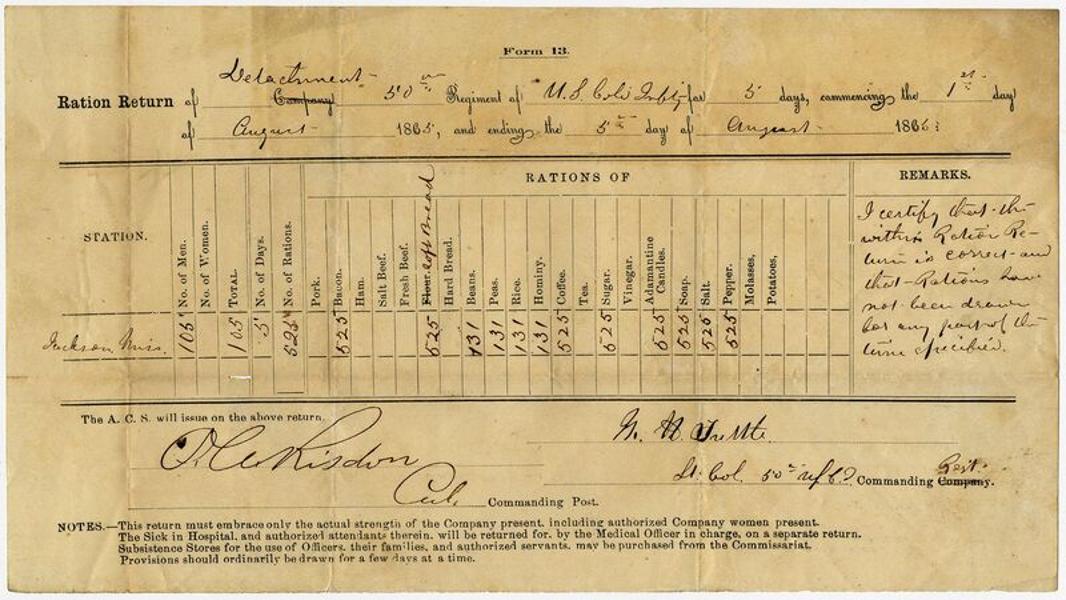 Form 13.
Detachment
Ration Return of Company 50th Regiment of U.S. Cold Infty for 5 days, commencing the 1st day
of August 1865, and ending the 5th day of August 1865:
STATION.
No. of Men.
No. of Women.
TOTAL.
No. of Days.
No. of Rations.
RATIONS OF
Pork.
Bacon.
Ham.
Salt Beef.
Fresh Beef.
Flour. Soft Bread
Hard Bread.
Beans.
Peas.
Rice.
Hominy.
Coffee.
Tea.
Sugar.
Vinegar.
Adamantine Candles.
Soap.
Salt.
Pepper.
Molasses,
Potatoes,
REMARKS.
Jackson Miss. 105 105 5 525 525 525 131 131 131 131 525 525 525 525 525 525
I certify that the
within Ration Re-
turn is correct and
that Rations have
not been drawn
for any part of the
time specified.
The A. C. S. will issue on the above return.
Risdon
Commanding Post.
Lt. Col. 50th Commanding Company. Regt.
NOTES.—This return must embrace only the actual strength of the Company present, including authorized Company women present.
The Sick in Hospital, and authorized attendants therein, will be returned for, by the Medical Officer in charge, on a separate return.
Subsistence Stores for the use of Officers, their families, and authorized servants, may be purchased from the Commissariat.
Provisions should ordinarily be drawn for a few days at a time.